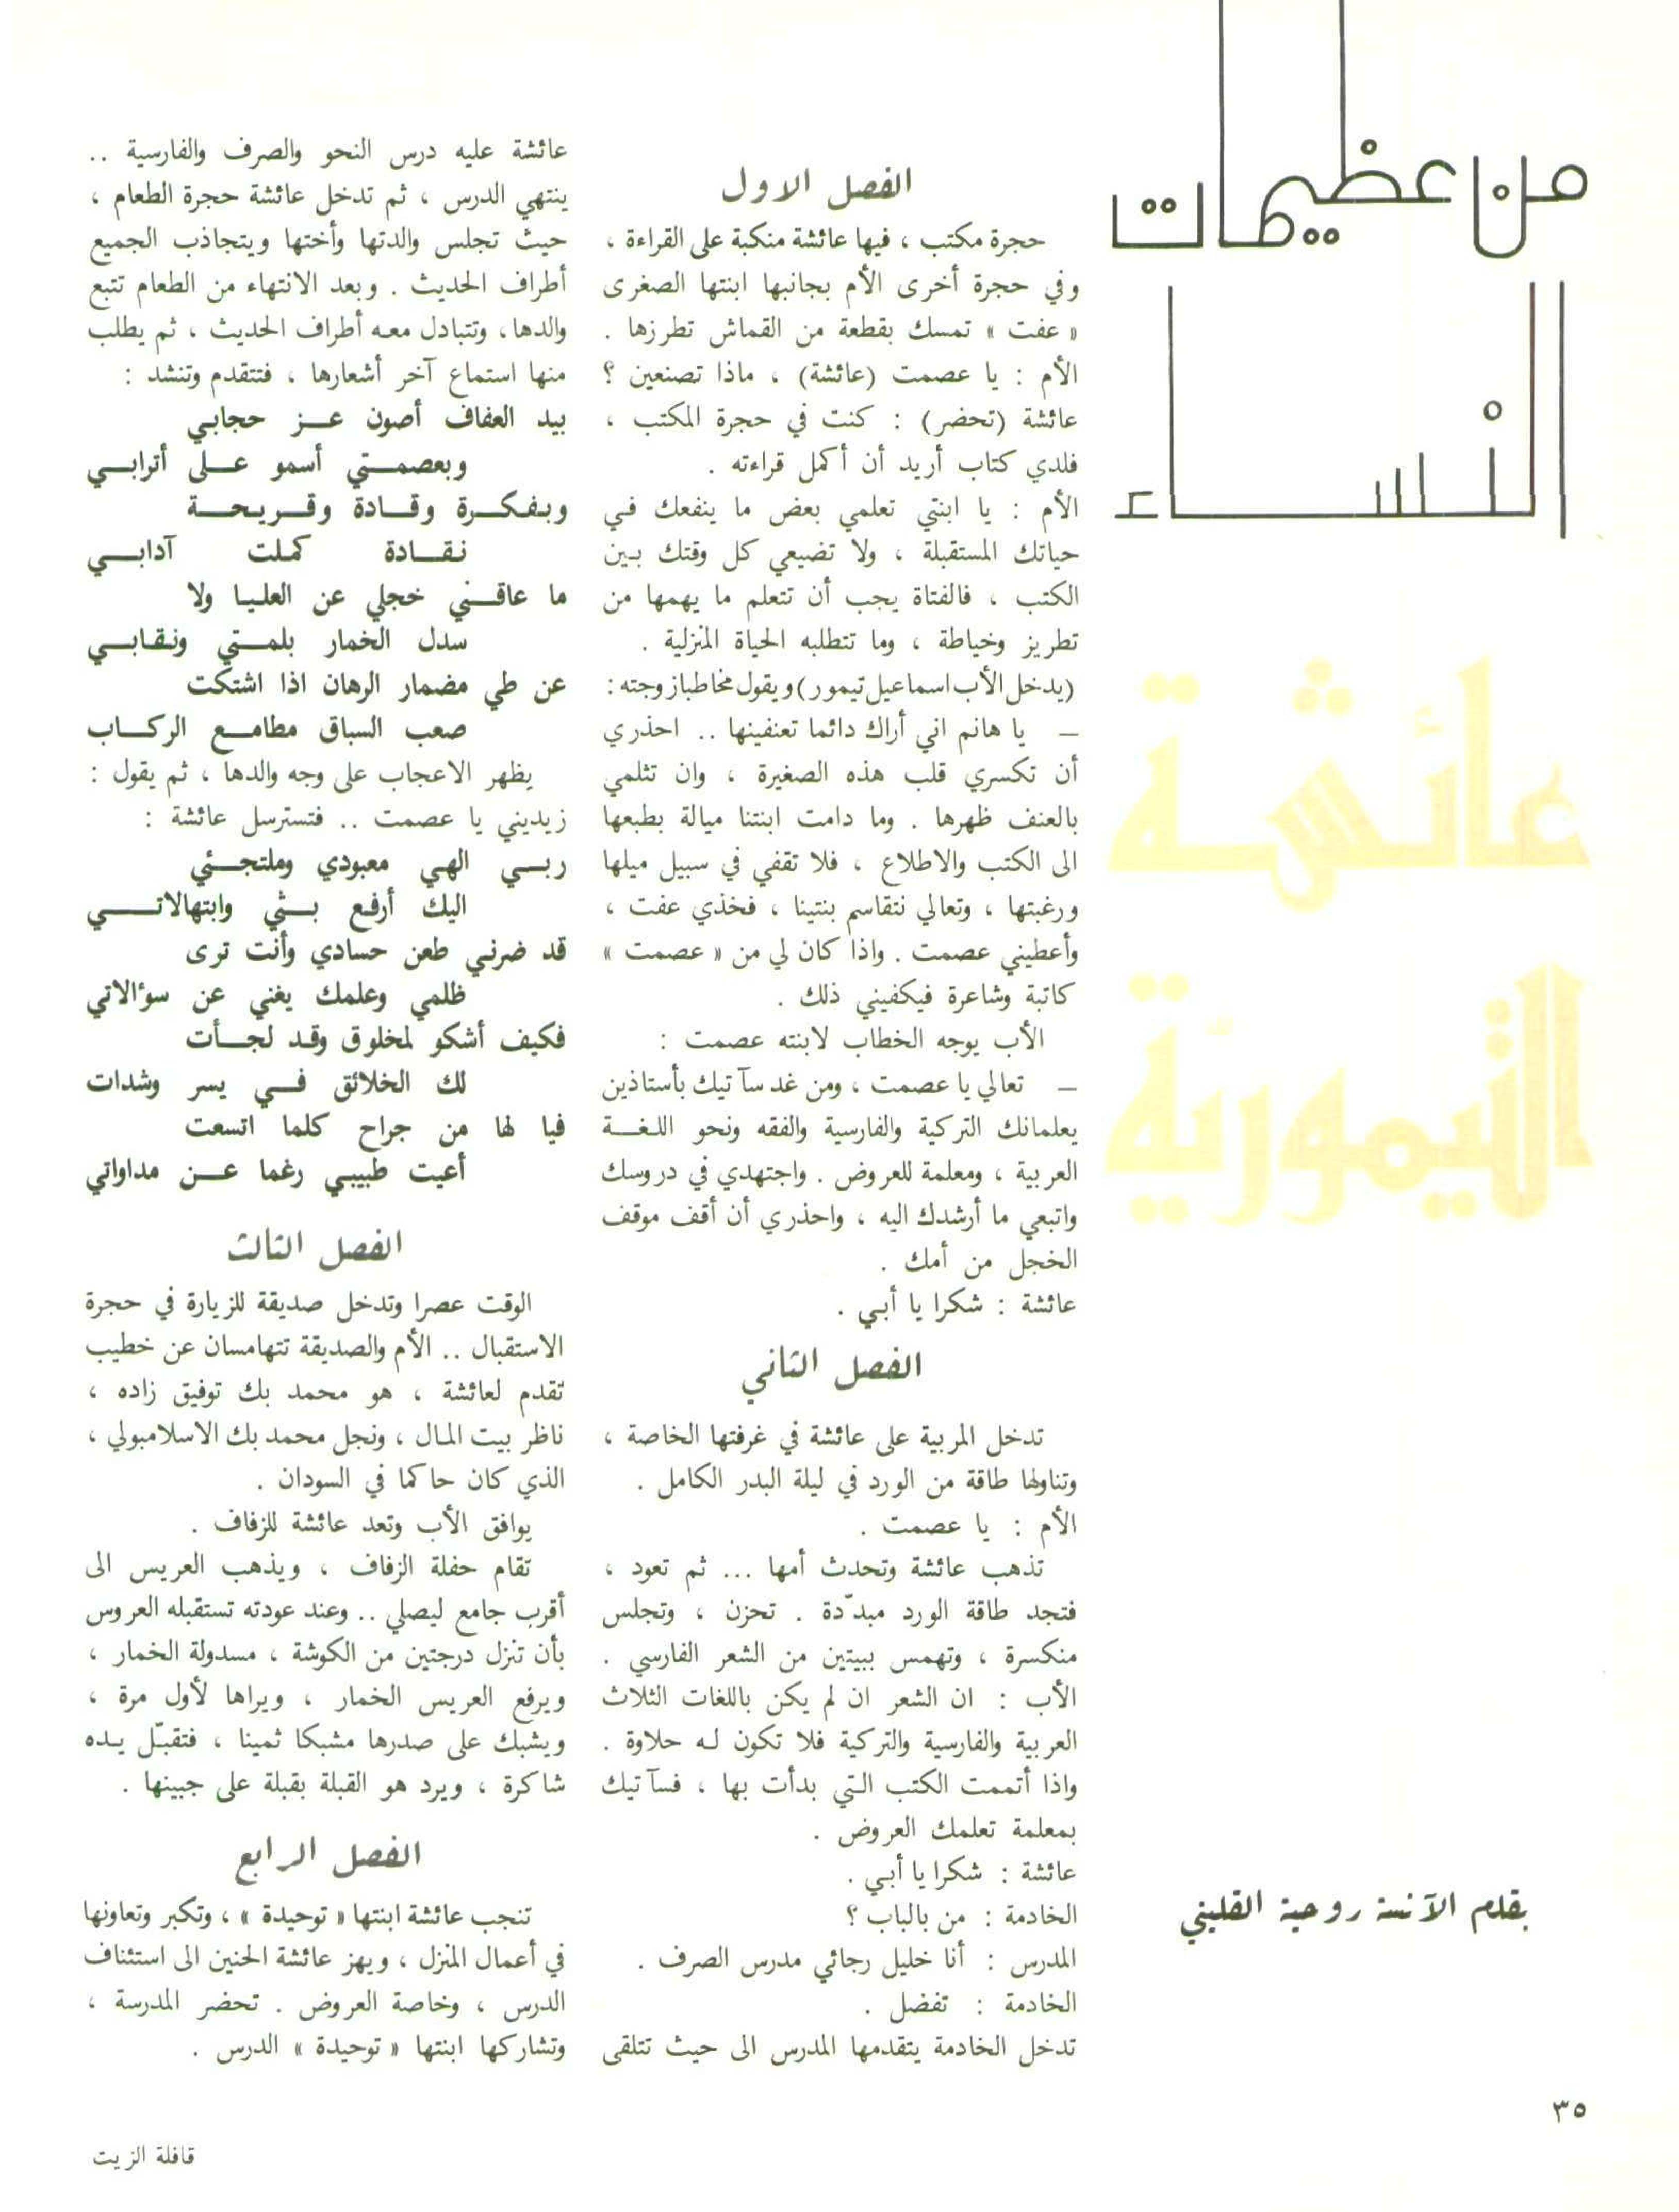 من عظيمات
النساء
عائشة
التيمورية
بقلم الآنسة روحية القليني
الفصل الاول
حجرة مكتب ، فيها عائشة منكبة على القراءة ،
وفي حجرة أخرى الأم بجانبها ابنتها الصغرى
« عفت » تمسك بقطعة من القماش تطرزها .
الأم : يا عصمت (عائشة) ، ماذا تصنعين ؟
عائشة (تحضر) : كنت في حجرة المكتب ،
فلدي كتاب أريد أن أكمل قراءته .
الأم : يا ابنتي تعلمي بعض ما ينفعك في
حياتك المستقبلة ، ولا تضيعي كل وقتك بين
الكتب ، فالفتاة يجب أن تتعلم ما يهمها من
تطريز وخياطة ، وما تتطلبه الحياة المنزلية .
(يدخل الأب اسماعيل تيمور) ويقول مخاطبا زوجته :
ــ يا هانم اني أراك دائما تعنفينها .. احذري
أن تكسري قلب هذه الصغيرة ، وان تثلمي
بالعنف ظهرها . وما دامت ابنتنا ميالة بطبعها
الى الكتب والاطلاع ، فلا تقفي في سبيل ميلها
ورغبتها ، وتعالي نتقاسم بنتينا ، فخذي عفت ،
وأعطيني عصمت . واذا كان لي من « عصمت »
كاتبة وشاعرة فيكفيني ذلك .
الأب يوجه الخطاب لابنته عصمت :
ــ تعالي يا عصمت ، ومن غد سآتيك بأستاذين
يعلمانك التركية والفارسية والفقه ونحو اللغـــة
العربية ، ومعلمة للعروض . واجتهدي في دروسك
واتبعي ما أرشدك اليه ، واحذري أن أقف موقف
الخجل من أمك .
عائشة : شكرا يا أبي .
الفصل الثاني
تدخل المربية على عائشة في غرفتها الخاصة ،
وتناولها طاقة من الورد في ليلة البدر الكامل .
الأم : يا عصمت .
تذهب عائشة وتحدث أمها ... ثم تعود ،
فتجد طاقة الورد مبدّدة . تحزن ، وتجلس
منكسرة ، وتهمس ببيتين من الشعر الفارسي .
الأب : ان الشعر ان لم يكن باللغات الثلاث
العربية والفارسية والتركية فلا تكون له حلاوة .
واذا أتممت الكتب التي بدأت بها ، فسآتيك
بمعلمة تعلمك العروض .
عائشة : شكرا يا أبي .
الخادمة : من بالباب ؟
المدرس : أنا خليل رجائي مدرس الصرف .
الخادمة : تفضل .
تدخل الخادمة يتقدمها المدرس الى حيث تتلقى
عائشة عليه درس النحو والصرف والفارسية ..
ينتهي الدرس ، ثم تدخل عائشة حجرة الطعام ،
حيث تجلس والدتها وأختها ويتجاذب الجميع
أطراف الحديث . وبعد الانتهاء من الطعام تتبع
والدها، وتتبادل معه أطراف الحديث ، ثم يطلب
منها استماع آخر أشعارها ، فتتقدم وتنشد :
بيد العفاف أصون عـــز حجابي
وبعصمـــتي أسمو عـــلى أترابـــي
وبـفـكـــرة وقـــادة وقـــريـحـــة
نـقـــادة كملت آدابـــي
ما عاقـــني خجلي عن العليـا ولا
سدل الخمار بلمـــتي ونـقـابـــي
عن طي مضمار الرهان اذا اشتكت
صعب السباق مطامـــع الركـــاب
يظهر الاعجاب على وجه والدها ، ثم يقول :
زيديني يا عصمت .. فتسترسل عائشة :
ربـــي الهي معبودي وملتجـــئي
اليك أرفـع بـــثي وابتهالاتـــــي
قد ضرني طعن حسادي وأنت ترى
ظلمي وعلمك يغني عن سؤالاتي
فكيف أشكو لمخلوق وقـد لجـــأت
لك الخلائق فـــي يسر وشدات
فيا لها من جراح كلما اتسعت
أعيت طبيبي رغما عـــن مداواتي
الفصل الثالث
الوقت عصرا وتدخل صديقة للزيارة في حجرة
الاستقبال .. الأم والصديقة تتهامسان عن خطيب
تقدم لعائشة ، هو محمد بك توفيق زاده ،
ناظر بيت المال ، ونجل محمد بك الاسلامبولي ،
الذي كان حاكما في السودان .
يوافق الأب وتعد عائشة للزفاف .
تقام حفلة الزفاف ، ويذهب العريس الى
أقرب جامع ليصلي .. وعند عودته تستقبله العروس
بأن تنزل درجتين من الكوشة ، مسدولة الخمار ،
ويرفع العريس الخمار ، ويراها لأول مرة ،
ويشبك على صدرها مشبكا ثمينا ، فتقبّل يـده
شاكرة ، ويرد هو القبلة بقبلة على جبينها .
الفصل الرابع
تنجب عائشة ابنتها « توحيدة » ، وتكبر وتعاونها
في أعمال المنزل ، ويهز عائشة الحنين الى استئناف
الدرس ، وخاصة العروض . تحضر المدرسة ،
وتشاركها ابنتها « توحيدة » الدرس .
٣٥
قافلة الزيت